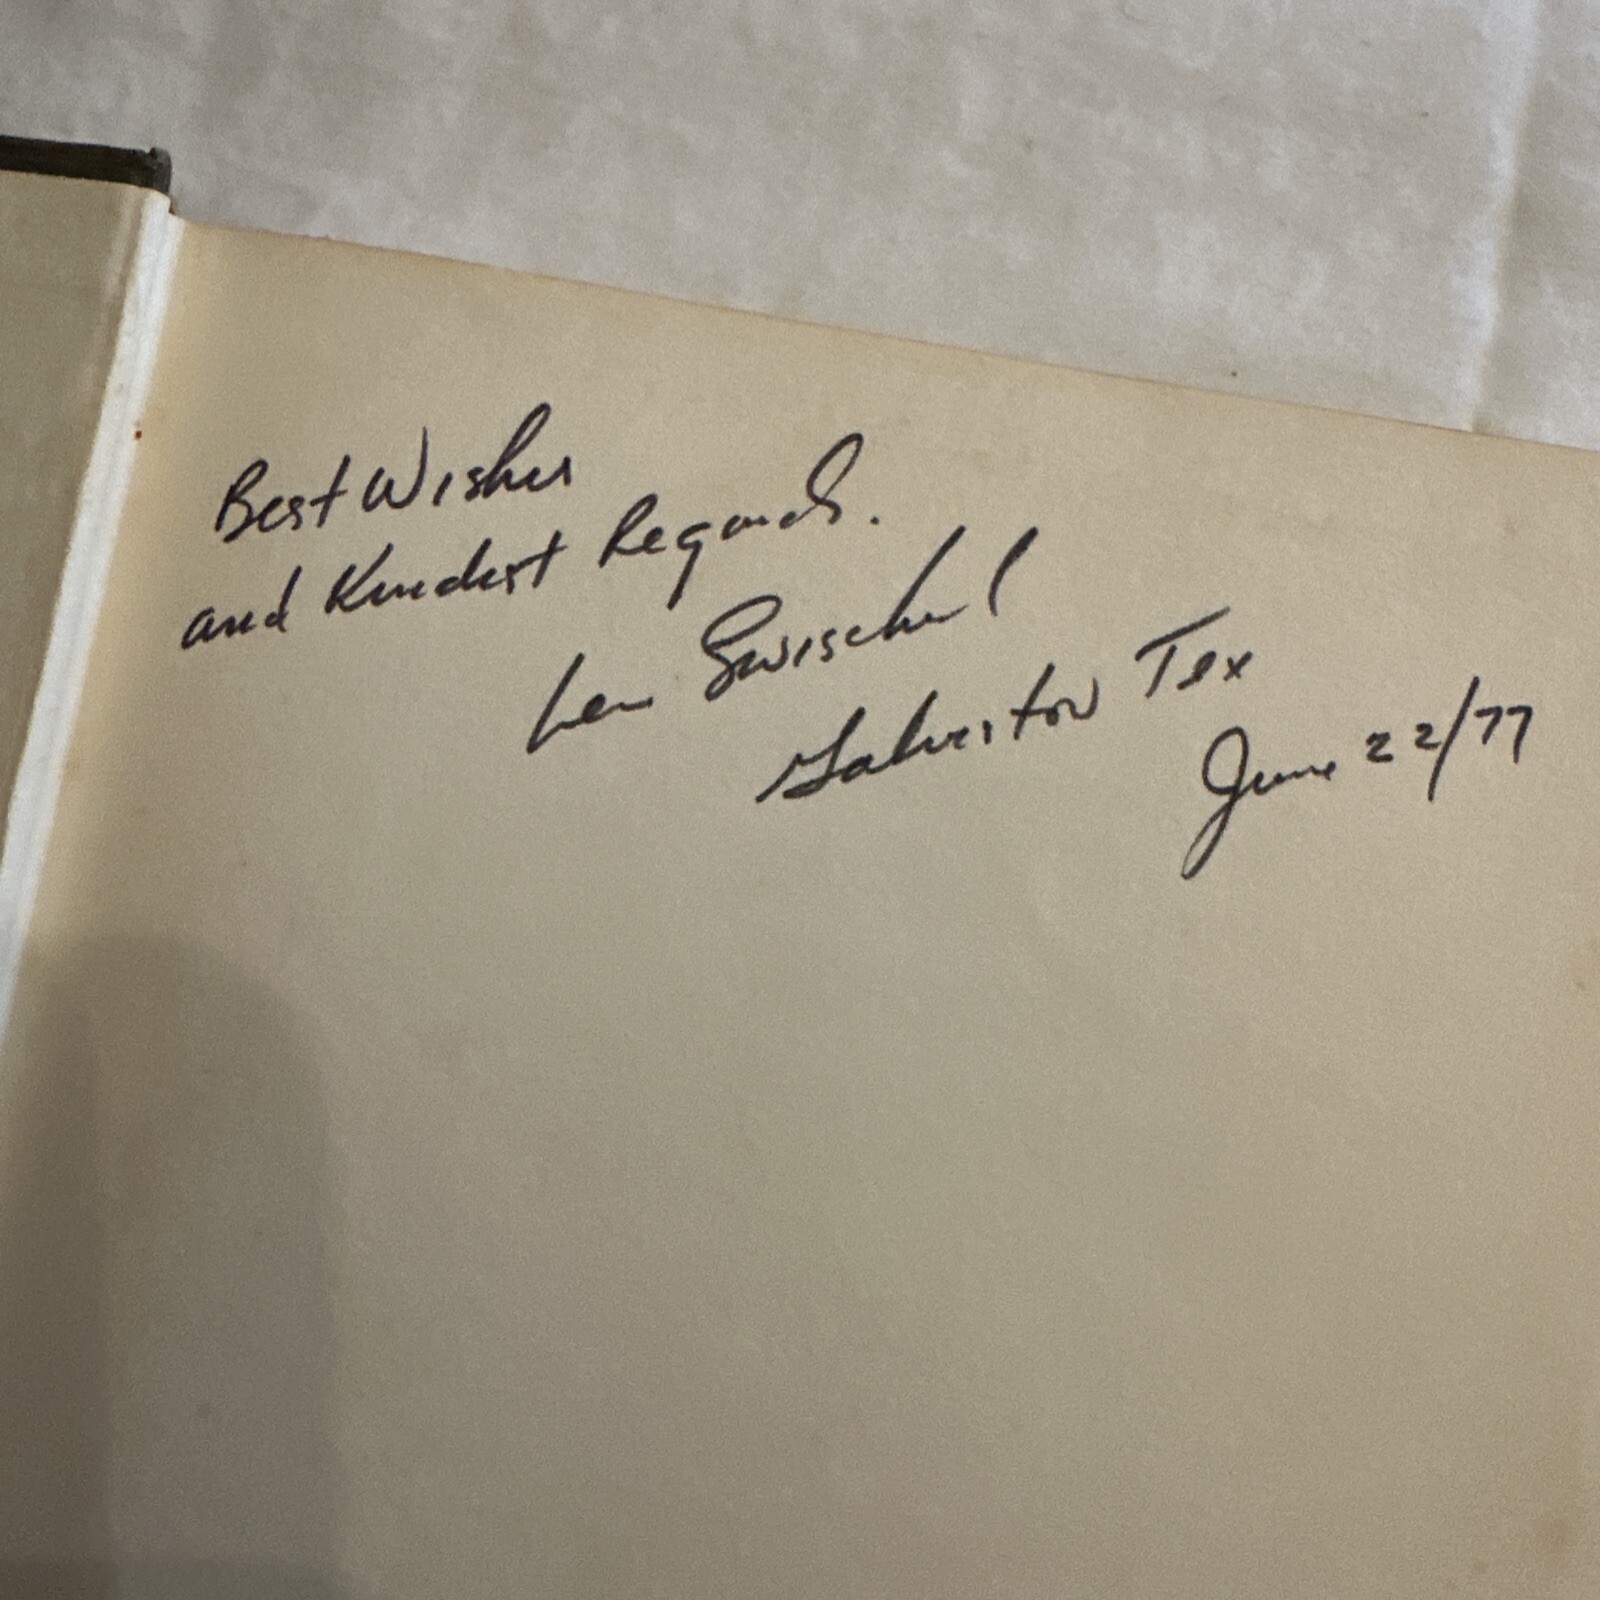 Best Wishes
and Kindest Regards.
Len
Galveston Tex
June 22/77